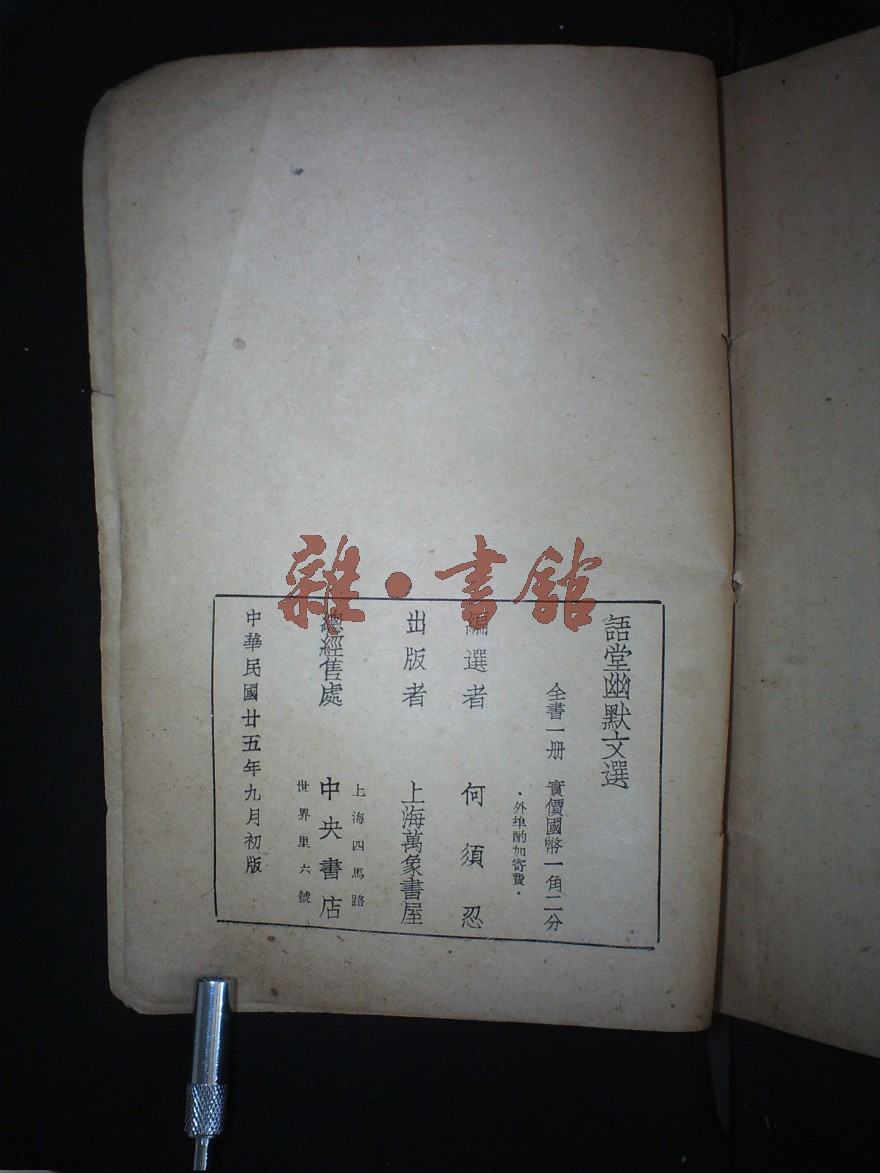 雜·書館
語堂幽默文選
全書一册 實價國幣一角二分
·外埠酌加寄費·
編選者 何須忍
出版者 上海萬象書屋
總經售處 中央書店
上海四馬路
世界里六號
中華民國廿五年九月初版